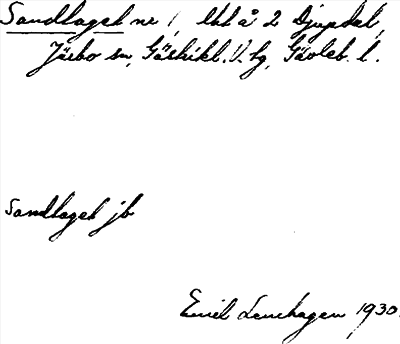 Sandtaget nr 1, lht å 2 Djupdal,
Järbo sn, Gästrikl. V. hg, Gävleb. l.
Sandtaget jb
Emil Lenhagen 1930.